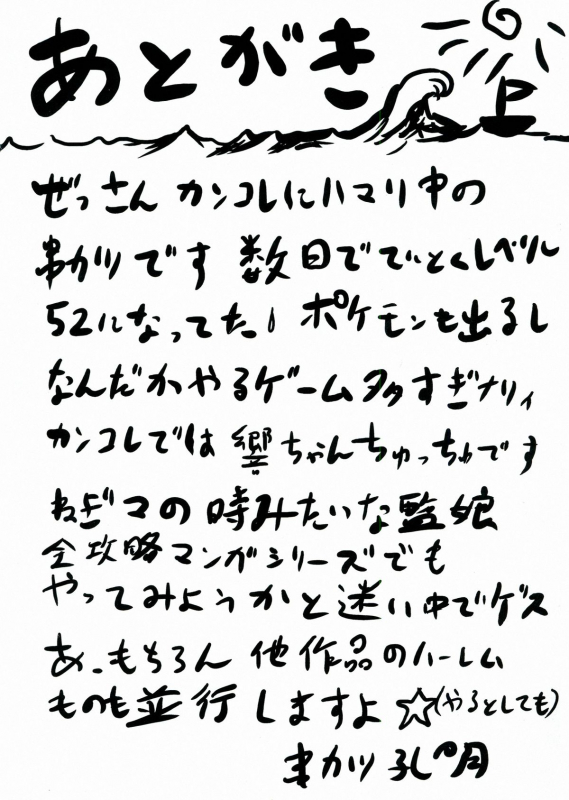 あとがき
ぜっさん カンコレにハマリ中の
串カツです 数日でていとくレベル
52になってた! ポケモンも出るし
なんだかやるゲーム多すぎナリィ
カンコレでは響ちゃんちゅっちゅです
ねぎマの時みたいな監娘
全攻略マンガシリーズでも
やってみようかと迷い中でゲス
あ、もちろん他作品のハーレム
ものも並行しますよ☆(やるとしても)
串カツ孔明